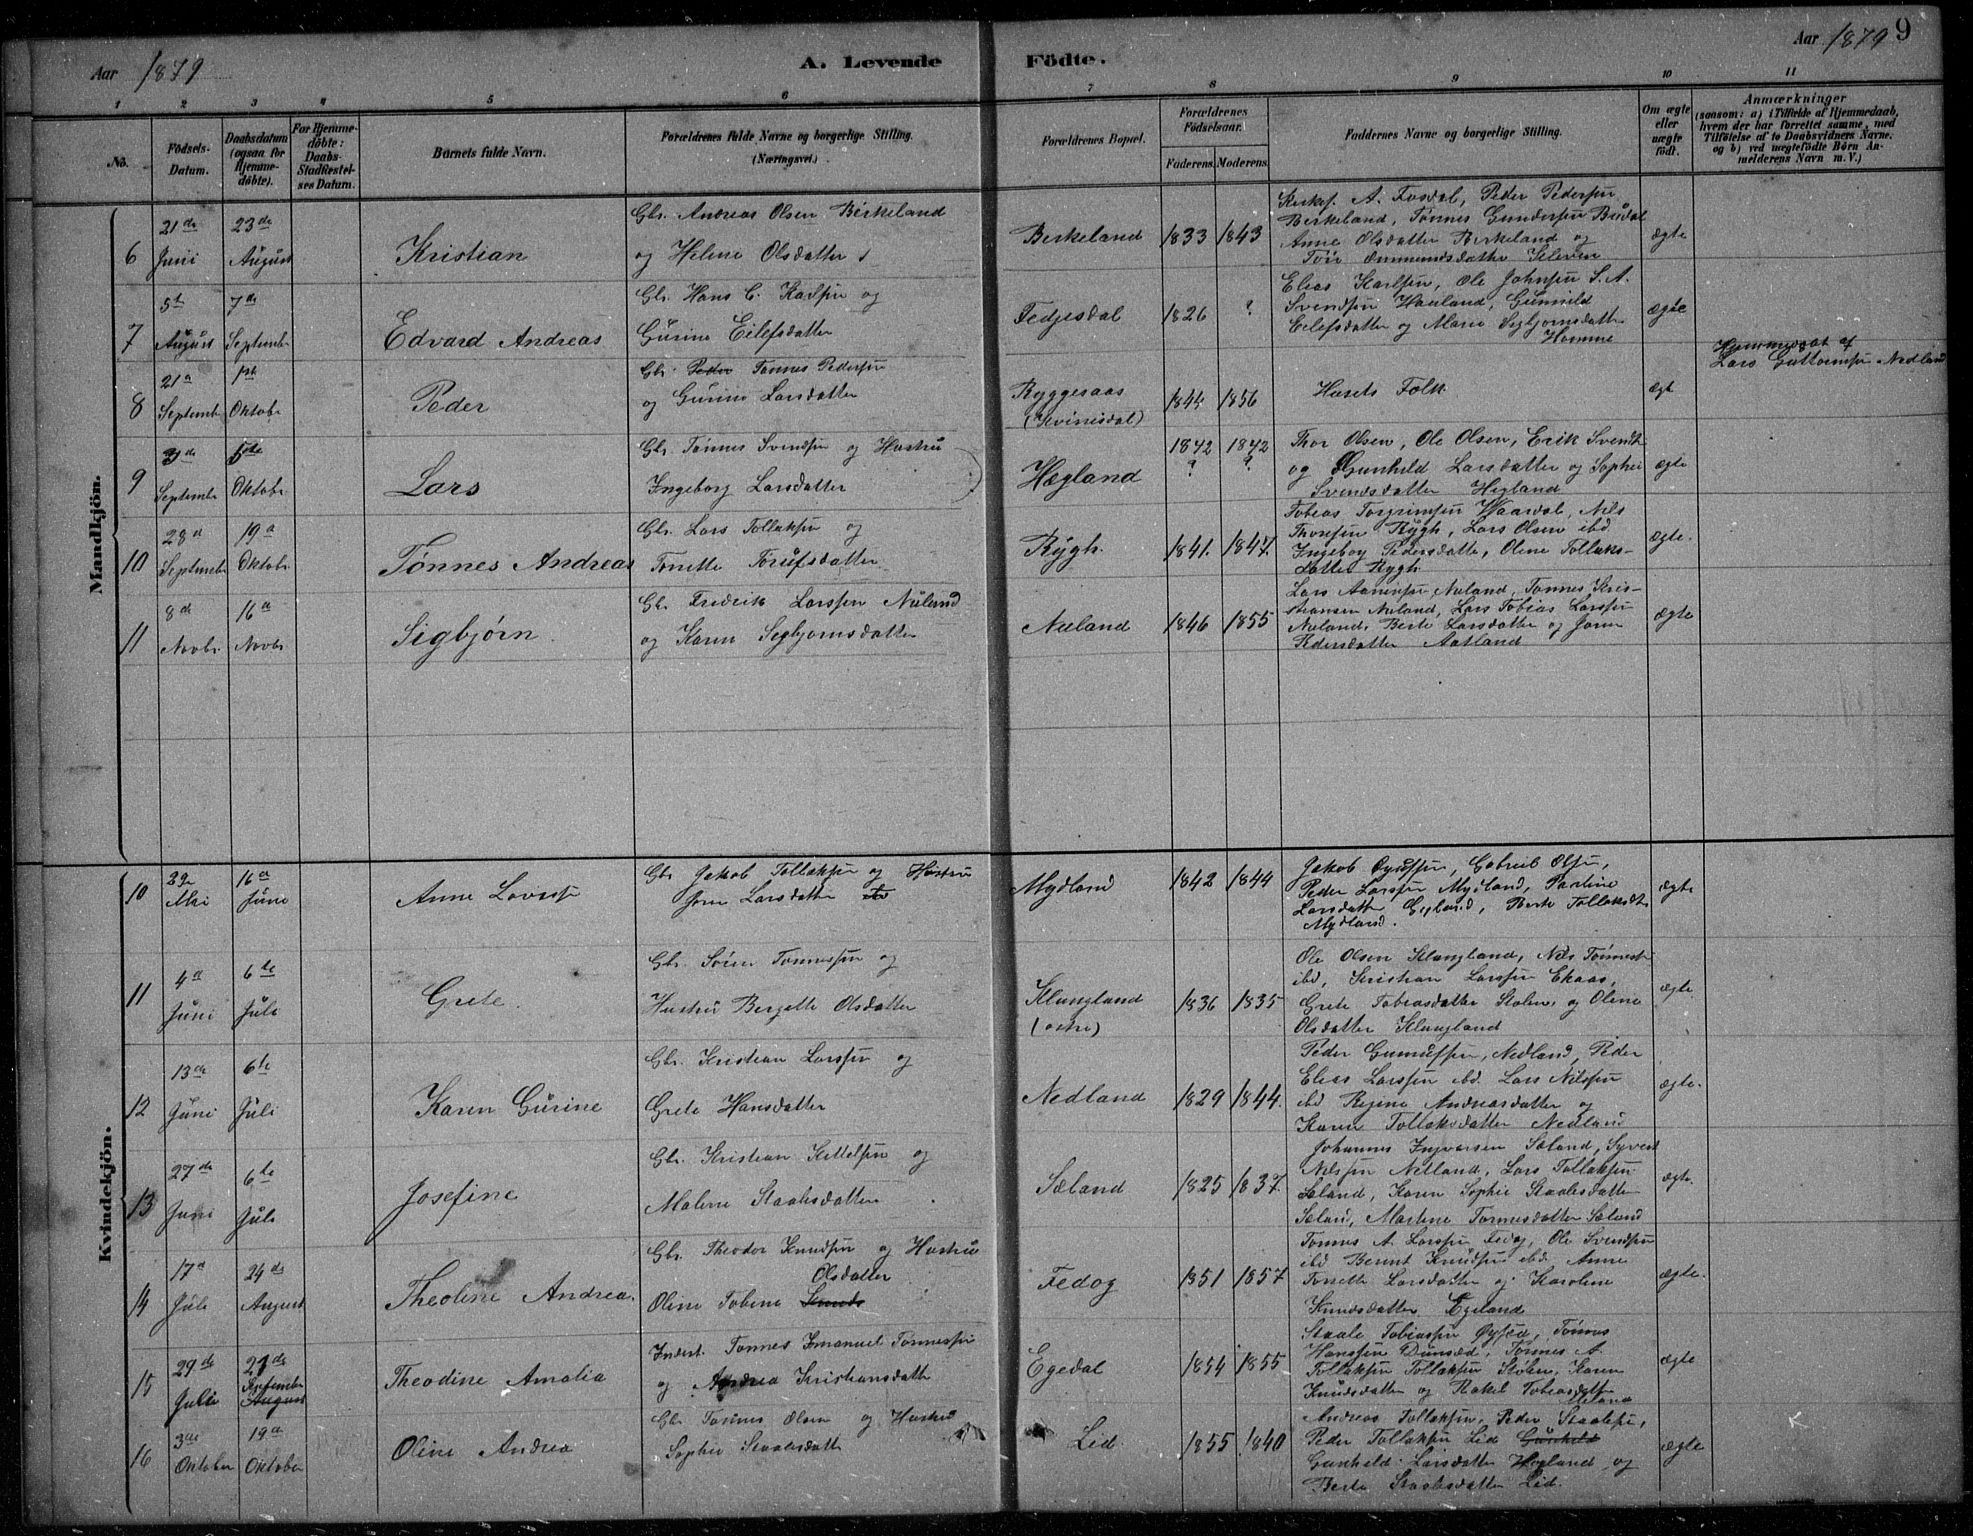 Aar 1879
A. Levende Födte.
Aar 1879 9
1 2 3 4 5 6 7 8 9 10 11
No.
Födsels-Datum.
Daabsdatum (ogsaa for Hjemme-döbte).
For Hjemme-döbte: Daabs-Stadfæstel-ses Datum.
Barnets fulde Navn.
Forældrenes fulde Navne og borgerlige Stilling. (Næringsvei.)
Forældrenes Bopæl.
Forældrenes Födselsaar.
Faderens. Moderens.
Faddernes Navne og borgerlige Stilling.
Om ægte eller uægte födt.
Anmærkninger
(saasom: a) i Tilfælde af Hjemmedaab,
hvem der har forrettet samme, med
Tilföielse af to Daabsvidners Navne.
og b) ved uægtefödte Börn An-
melderens Navn m. V.)
Mandkjön.
6 21de Juni 23de August Kristian
Gbr. Andreas Olsen Birkeland
og Helene Olsdatter
Birkeland 1833 1843
Kirkes. A. Fosdal, Peder Pedersen
Birkeland, Tønnes Gundersen
Anne Olsdatter Birkeland og
ægte
7 5te August 7de Septembr Edvard Andreas
Gbr. Hans C. Karlsen og
Gurine Eilefsdatter
Fedjesdal 1826 ?
Elias Karlsen, Ole Johnsen S. A.
Svendsen Hauland, Gunild
Eilefsdatter og Marie Sigbjørnsdatter
Homme
ægte
8 21de Septembr 1ste Oktobr Peder
Gbr. Peder Tønnes Pedersen
og Gurine Larsdatter
Ryggesaas
(Kvinesdal)
1844 1856
Husets Folk
ægt
Hjemmedøbt af
Lars Guttormsen Nedland
9 3de Septembr 5te Oktobr Lars
Gbr. Tønnes Svendsen og Hustru
Ingeborg Larsdatter
Hægland 1842 ? 1842 ?
Thor Olsen, Ole Olsen, Erik Svends.
og Gunhild Larsdatter og Sophie
Svendsdatter Hegland
ægte
10 28de Septembr 19de Oktobr Tønnes Andreas
Gbr. Lars Tollaksen og
Tonette
Rygh. 1841. 1847.
Tobias Torgrimsen Waardal, Nils
Thorsen Rygh, Lars Olsen ibd
Ingebog Pedersdatter, Oline Tollaks-
datter Rygh
ægte.
11 8de Novbr 16de Novbr Sigbjørn.
Gbr. Fredrik Larssen Nuland
og Karen Sigbjørnsdatter
Nuland 1846 1855
Lars Aanensen Nuland, Tønnes Kris-
tiansen Nuland, Lars Tobias Larssen
Nuland, Berte Larsdatter og Joren
Pedersdatter Aatland
ægte
Kvindekjön.
10 29de Mai 16de Juni Anne Lovise
Gbr Jakob Tollaksen og Hustru
Joren Larsdatter
Mydland 1842 1844
Jakob Øyulfsen, Gabriel Olsen,
Peder Larssen Mydland, Partine
Larsdatter Egeland, Berte Tollaksdtr
Mydland.
ægte
11 4de Juni 6te Juli Grete.
Gbr. Søren Tønnessen og
Hustru Bergitte Olsdatter
Klungland
(østre)
1836 1835
Ole Olsen Klungland, Nils Tønness.
ibd, Kristian Larssen Ekaas,
Grete Tobiasdatter Stolen, og Oline
Olsdatter Klungland
ægte
12 13de Juni 6te Juli Karen Gurine
Gbr. Kristian Larssen og
Grete Hansdatter
Nedland 1829 1844.
Peder Gunnufsen, Nedland, Peder
Elias Larssen ibd. Lars Nilssen
ibd Regine Andreasdatter og
Karen Tollaksdatter Nedland
ægte.
13 27de Juni 6te Juli Josefine
Gbr. Kristian Kittelsen og
Malene Staalesdatter
Sæland 1825 1837.
Johannes Ingvarsen Sæland, Syvert
Nilssen Netland, Lars Tollaksen
Sæland, Karen Sophie Staalesdatter
Sæland, Martine Tønnesdatter Sæland
ægte.
14 17de Juli 24de August Theoline Andrea.
Gbr. Theodor Knudsen og Hustru
Olsdatter
Oline Tobine Knuds
Fedog 1851 1857
Tønnes A. Larssen Fedog, Ole Svendsen
ibd Bernt Knudsen ibd Anne
Tonette Larsdatter og Karoline
Knudsdatter Egeland
ægte.
15 29de Juli 21de Septembr August Theodine Amalia
Inderst. Tønnes Emanuel Tønnessen
og Andrea Kristiansdatter
Egedal 1854 1855
Staale Tobiassen Øysæd, Tønnes
Hanssen Dunsæd, Tønnes A.
Tollaksen Tollaksen Stolen, Karen
Knudsdatter og Rakel Tobiasdatter
ægte
16 3die Oktober 19de Oktober Oline Andrea
Gbr Tønnes Olsen og Hustru
Sophie Staalesdatter
Lid 1855 1840
Andreas Tollaksen, Peder Staalesen,
Peder Tollaksen Lid Gunhild
Gunhild Larsdatter Hegland og
Berte Staalesdatter Lid.
ægte